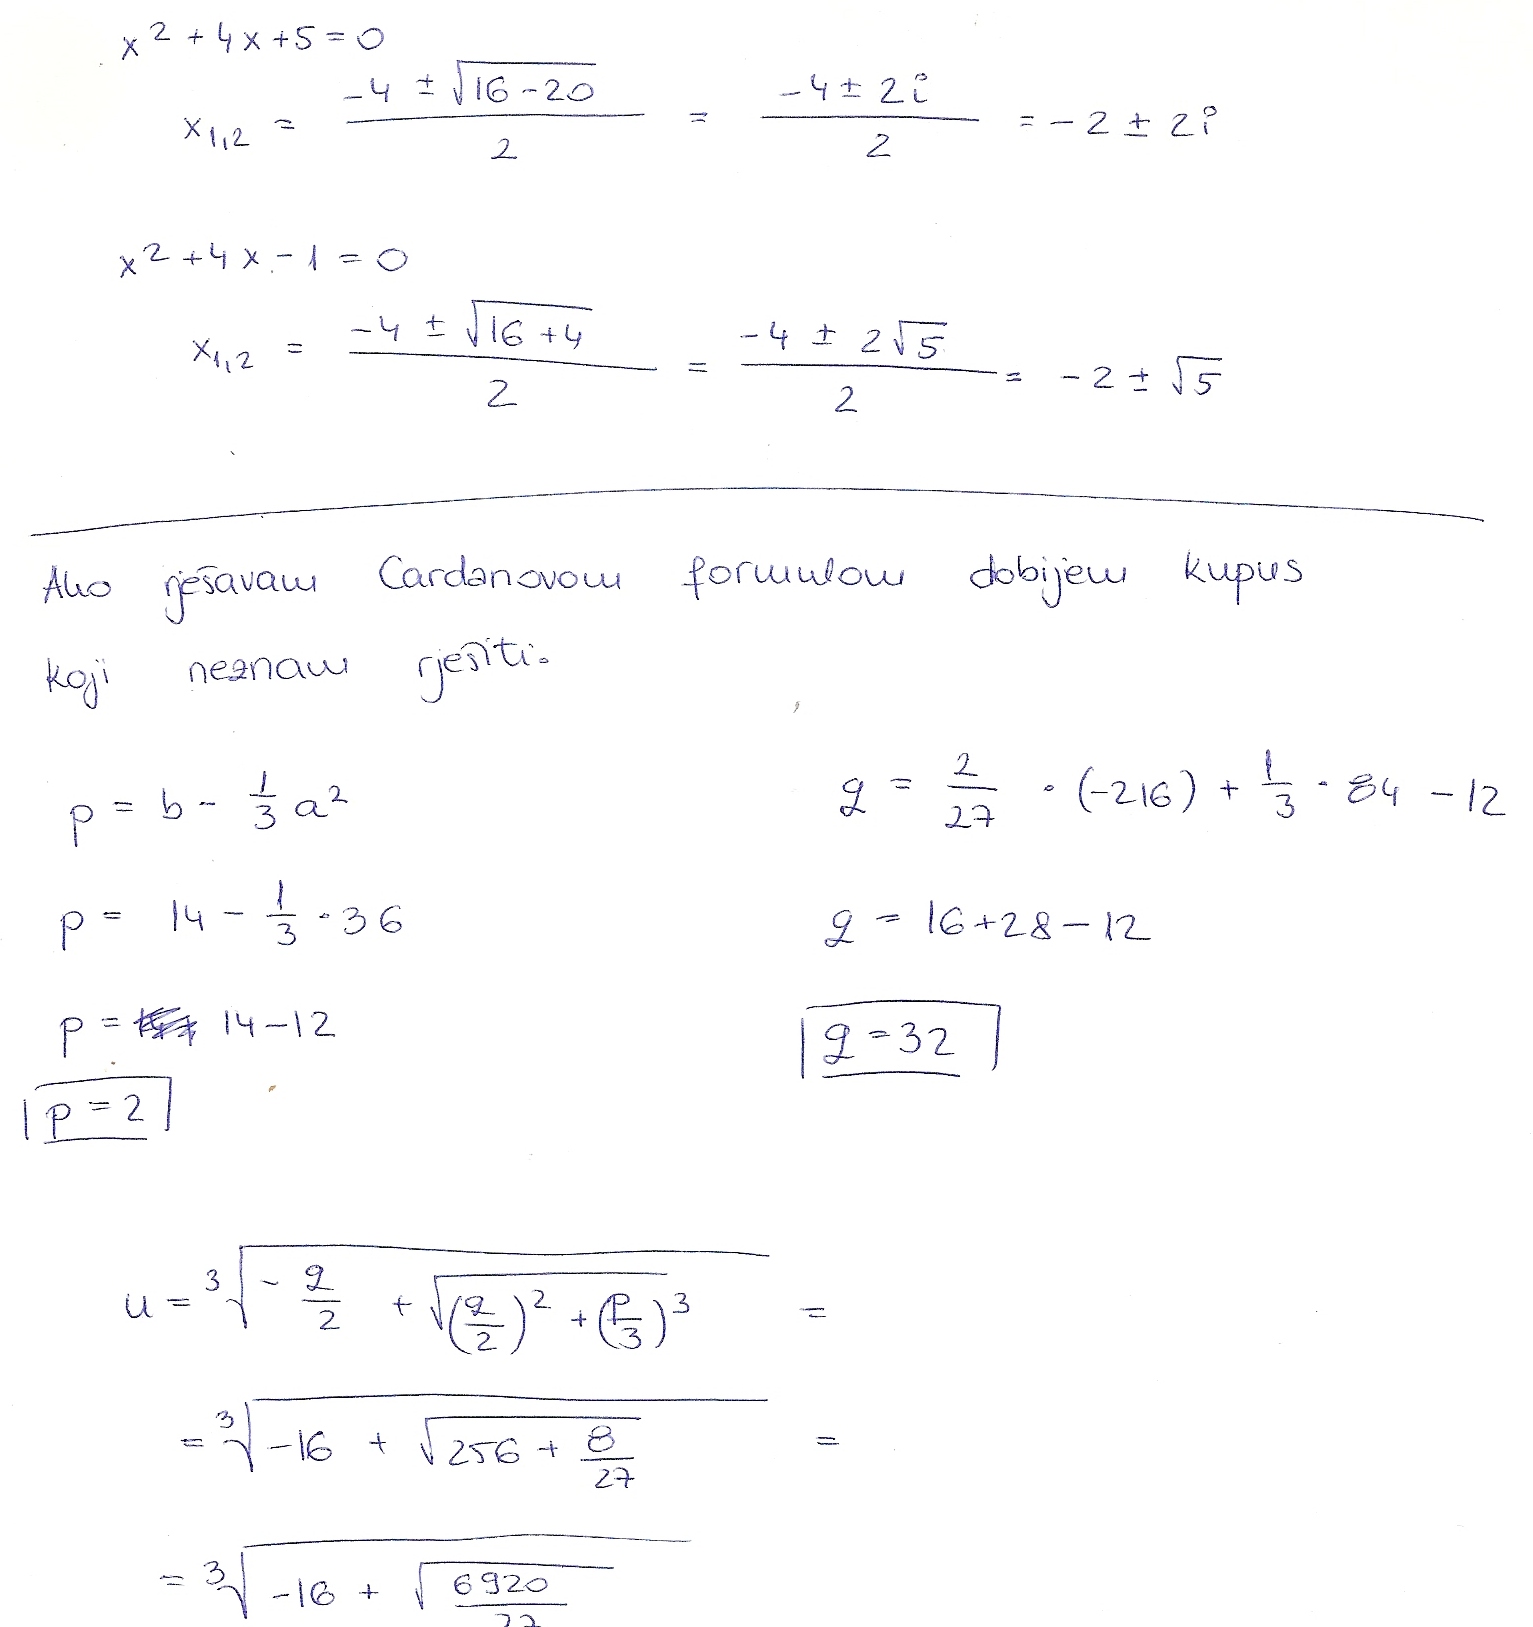 x² + 4x + 5 = 0
x₁,₂ = (-4 ± √(16-20))/2 = (-4 ± 2i)/2 = -2 ± 2i
x² + 4x - 1 = 0
x₁,₂ = (-4 ± √(16+4))/2 = (-4 ± 2√5)/2 = -2 ± √5
Ako rješavam Cardanovom formulom dobijem kupus
koji neznam rješiti.
p = b - 1/3 a²
q = 2/27 · (-216) + 1/3 · 84 - 12
p = 14 - 1/3 · 36
q = 16+28-12
p = 14-12
q = 32
p = 2
u = ∛(-q/2 + √((q/2)² + (p/3)³)) =
= ∛(-16 + √(256 + 8/27)) =
= ∛(-16 + √(6920/27))